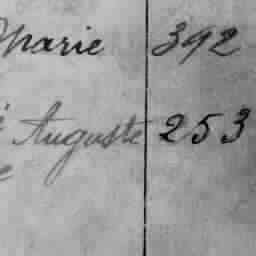 Marie 392
Auguste 253